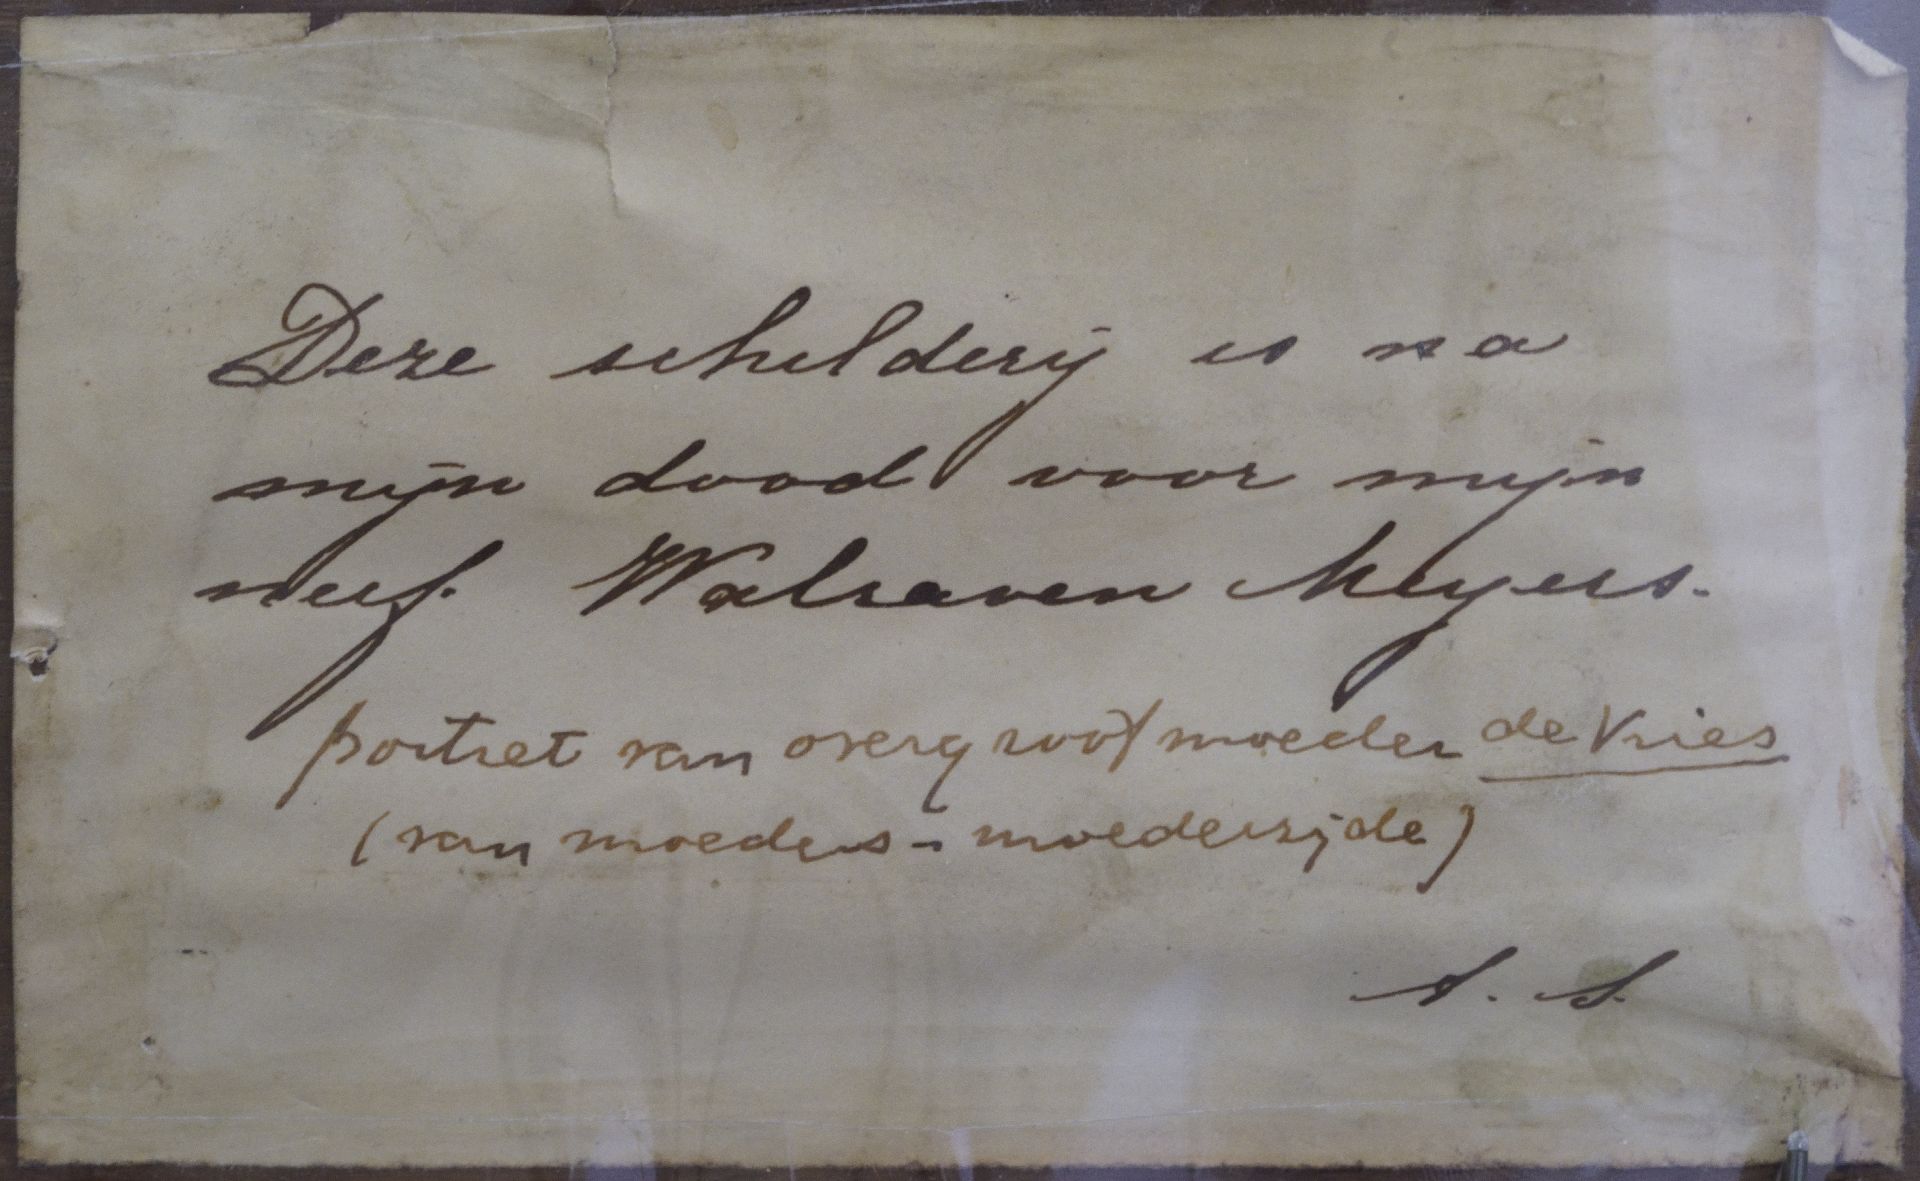 Deze schilderij is na
mijn dood voor mijn
neef. Walraven Meyers.
portret van overgrootmoeder de Vries
(van moeders-moederszijde)
A. S.